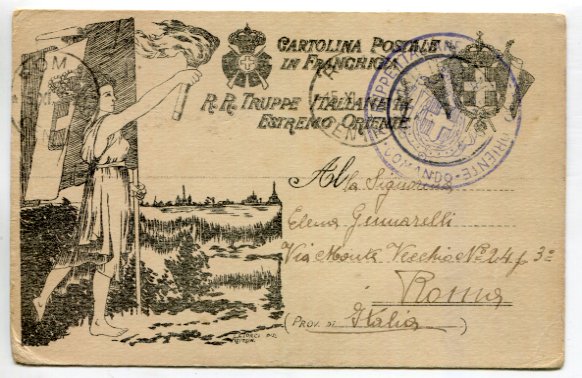 CARTOLINA POSTALE
IN FRANCHIGIA
R.R. TRUPPE ITALIANE IN
ESTREMO ORIENTE
COM
E
COMANDO
ORIENTE
Alla Signorina
Elena Gennarelli
Via Monte Vecchio Nº 24 p. 3º
Roma
(PROV. DI Italia)